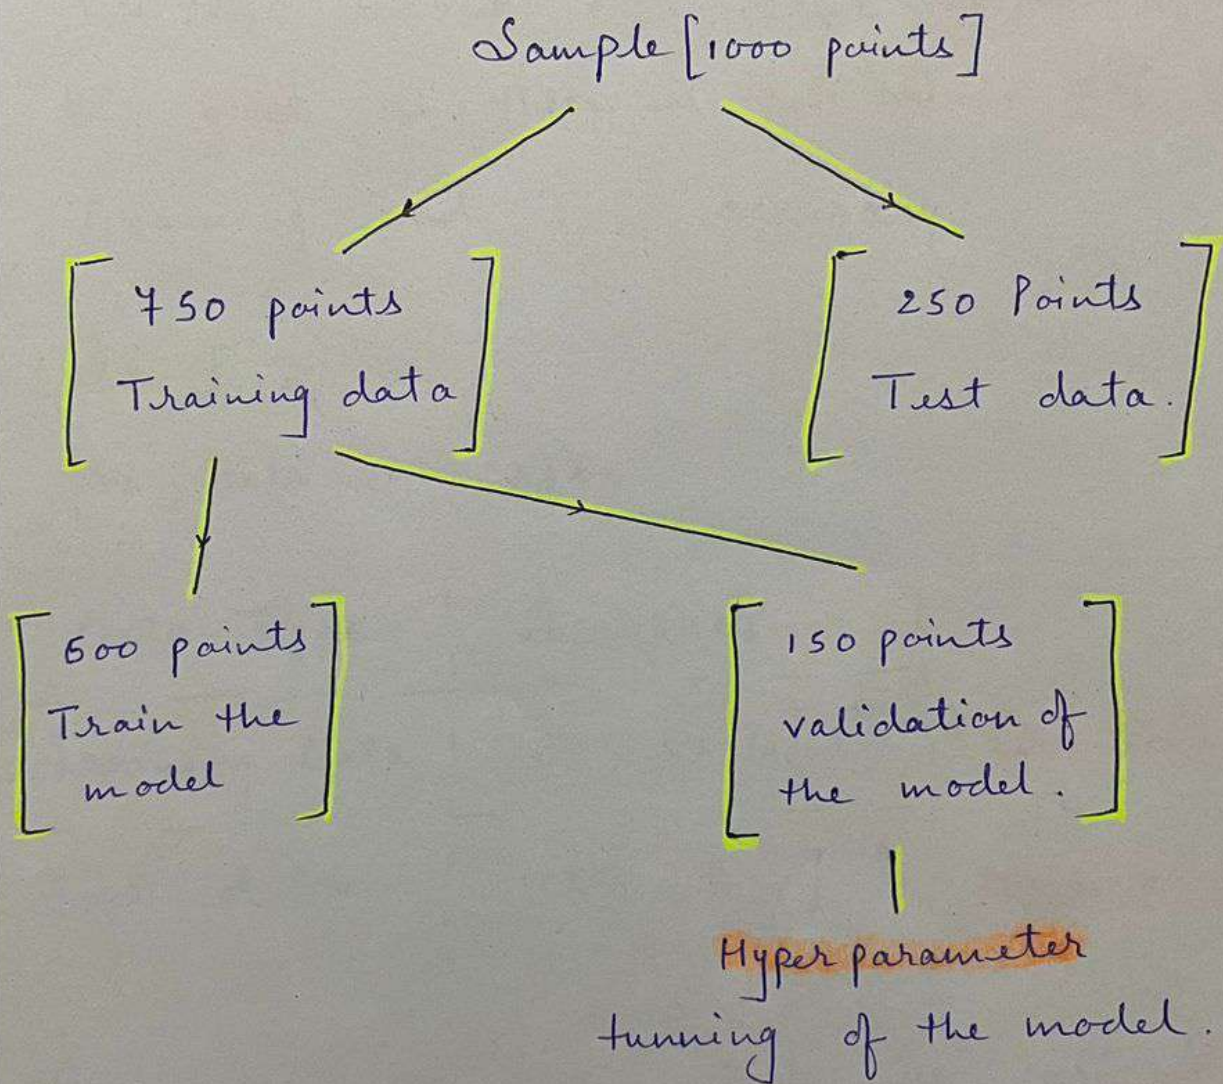 Sample [1000 points]
750 points
Training data
250 Points
Test data.
600 points
Train the
model
150 points
validation of
the model.
Hyper parameter
tunning of the model.